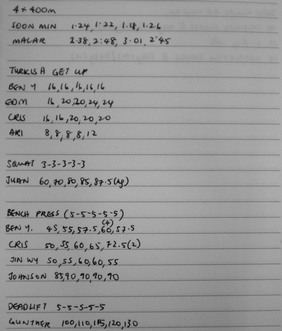 4 x 400m
SOON MIN 1.24, 1.22, 1.18, 1.26
MALAR 2.38, 2.48, 3.01, 2.45
TURKISH GET UP
BEN Y 16, 16, 16, 16, 16
EDM 16, 20, 20, 24, 24
CRIS 16, 16, 20, 20, 20
ARI 8, 8, 8, 8, 12
SQUAT 3-3-3-3-3
JUAN 60, 70, 80, 85, 87.5 (kg)
BENCH PRESS (5-5-5-5-5)
BEN Y. 45, 55, 57.5, 60, 57.5
CRIS 50, 55, 60, 65, 72.5 (2)
JIN WY 50, 55, 60, 60, 55
JOHNSON 85, 90, 90, 90, 90
DEADLIFT 5-5-5-5-5
GUNTHER 100, 110, 115, 120, 130